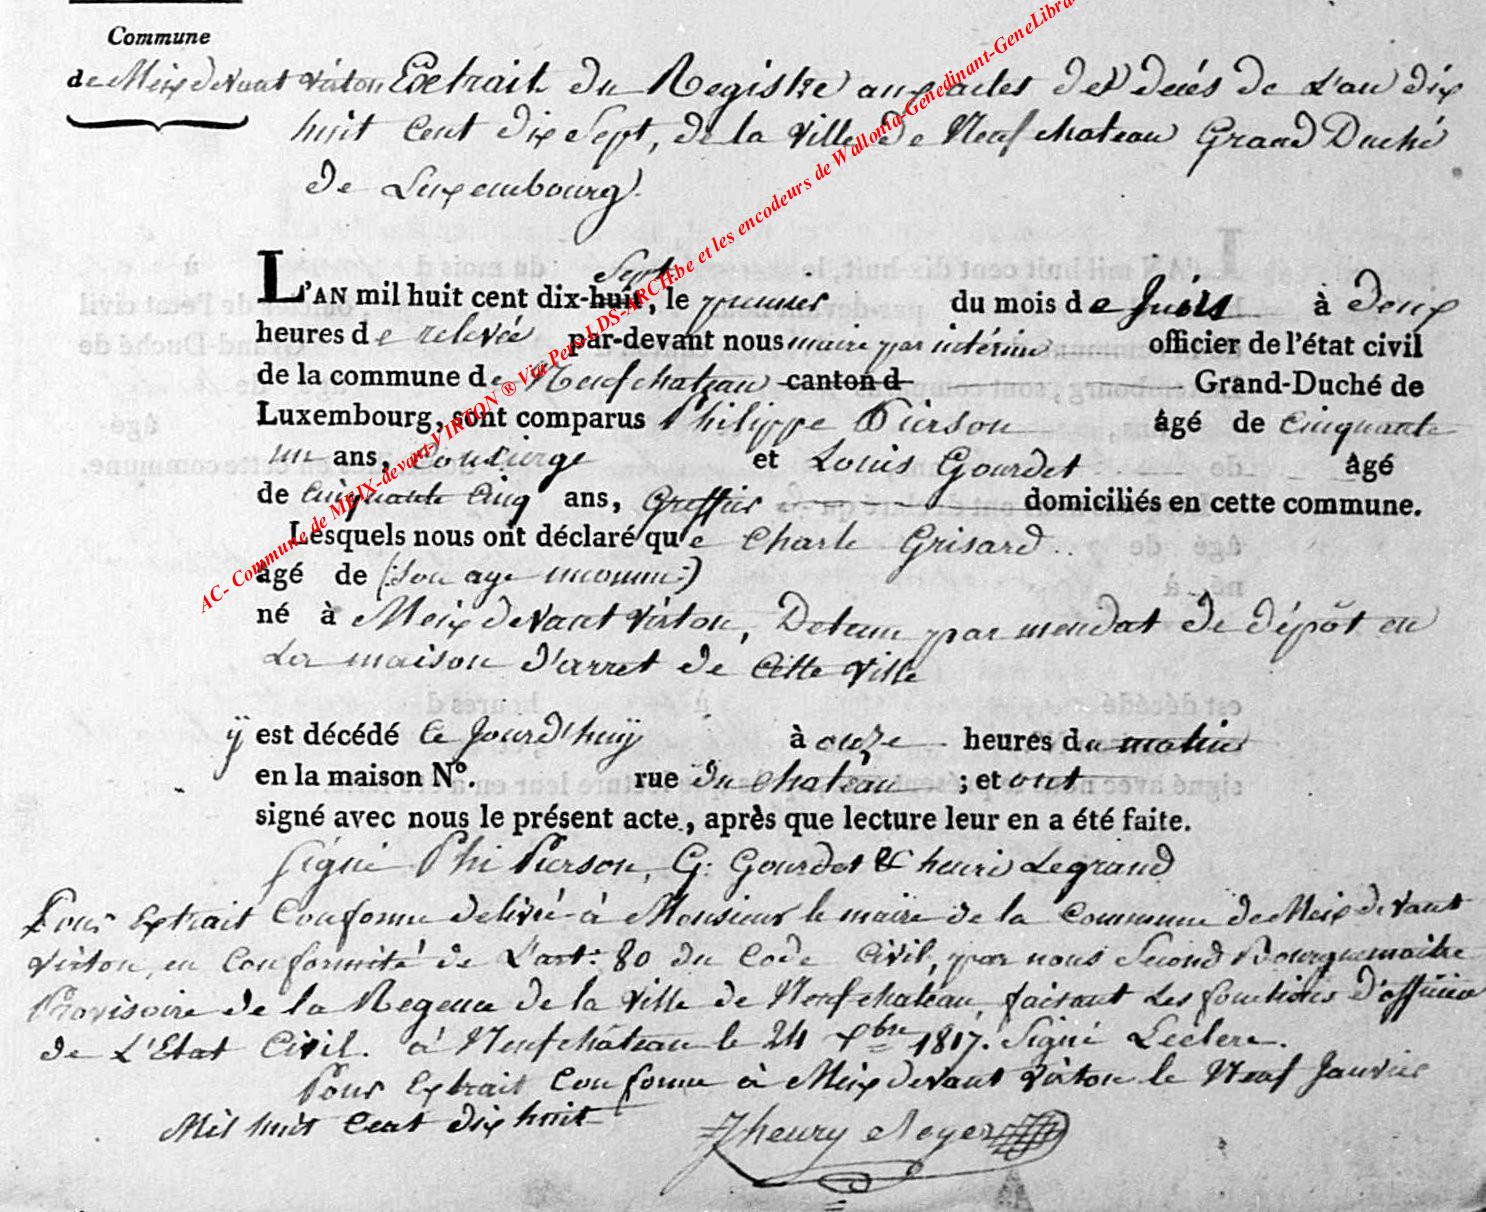 Commune
de Meix devant virton Extrait du Registre aux actes de decés de L'an dix
huit Cent dix Sept, de la ville de Neufchateau Grand Duché
de Luxembourg.
Sept
L'AN mil huit cent dix-huit, le premier du mois de à deux
heures de relevée par-devant nous maire par intérim officier de l'état civil
de la commune de Neufchateau canton d Grand-Duché de
Luxembourg, sont comparus Philippe Pierson âgé de Cinquante
un ans, Concierge et Louis Gourdet âgé
de Cinquante Cinq ans, Greffier domiciliés en cette commune.
Lesquels nous ont déclaré que Charle Grisard
âgé de (:Son age inconnu:)
né à Meix devant virton, Detenu par mendat de dépôt en
La maison d'arret de Cette ville
ÿ est décédé Ce Jourd'huÿ à onze heures du matin
en la maison N°. rue du chateau ; et ont
signé avec nous le présent acte, après que lecture leur en a été faite.
Signé Phi Pierson, G: Gourdet & henri Legrand
Pour Extrait Conforme delivré à Monsieur le maire de la Commune de Meix devant
virton, en Conformité de L'art: 80 du Code Civil, par nous Second Bourguemaitre
Provisoire de la Regence de la ville de Neufchateau, faisant Les fonctions d'officier
de L'Etat Civil. à Neufchâteau le 24 Xbre 1817. Signé Leclere.
Pour Extrait Conforme à Meix devant virton le Neuf Janvier
Mil huit Cent dix huit
Jhenry
AC- Commune de MEIX-devant-VIRTON ® Via Pers-LDS-ARCH.be et les encodeurs de Wallonia-Genedinant-GeneLibra